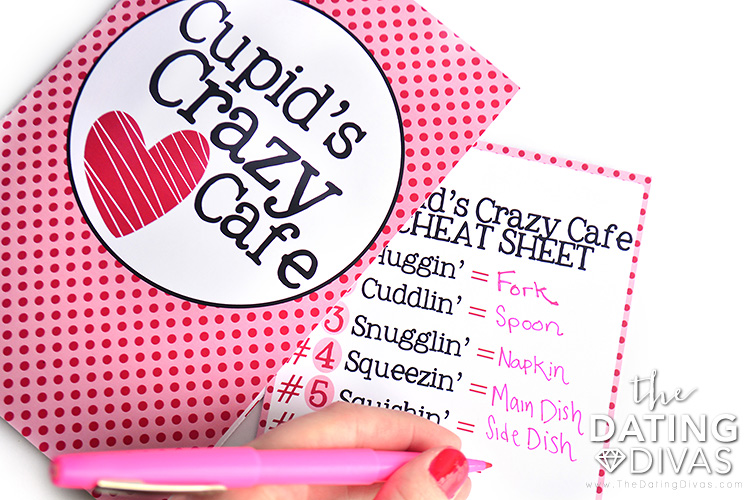 Cupid's
Crazy
Cafe
id's Crazy Cafe
CHEAT SHEET
Huggin' = Fork
Cuddlin' = Spoon
3 Snugglin' = Napkin
#4 Squeezin' = Main Dish
#5 Squishin' = Side Dish
#
the
DATING
DIVAS
www.TheDatingDivas.com